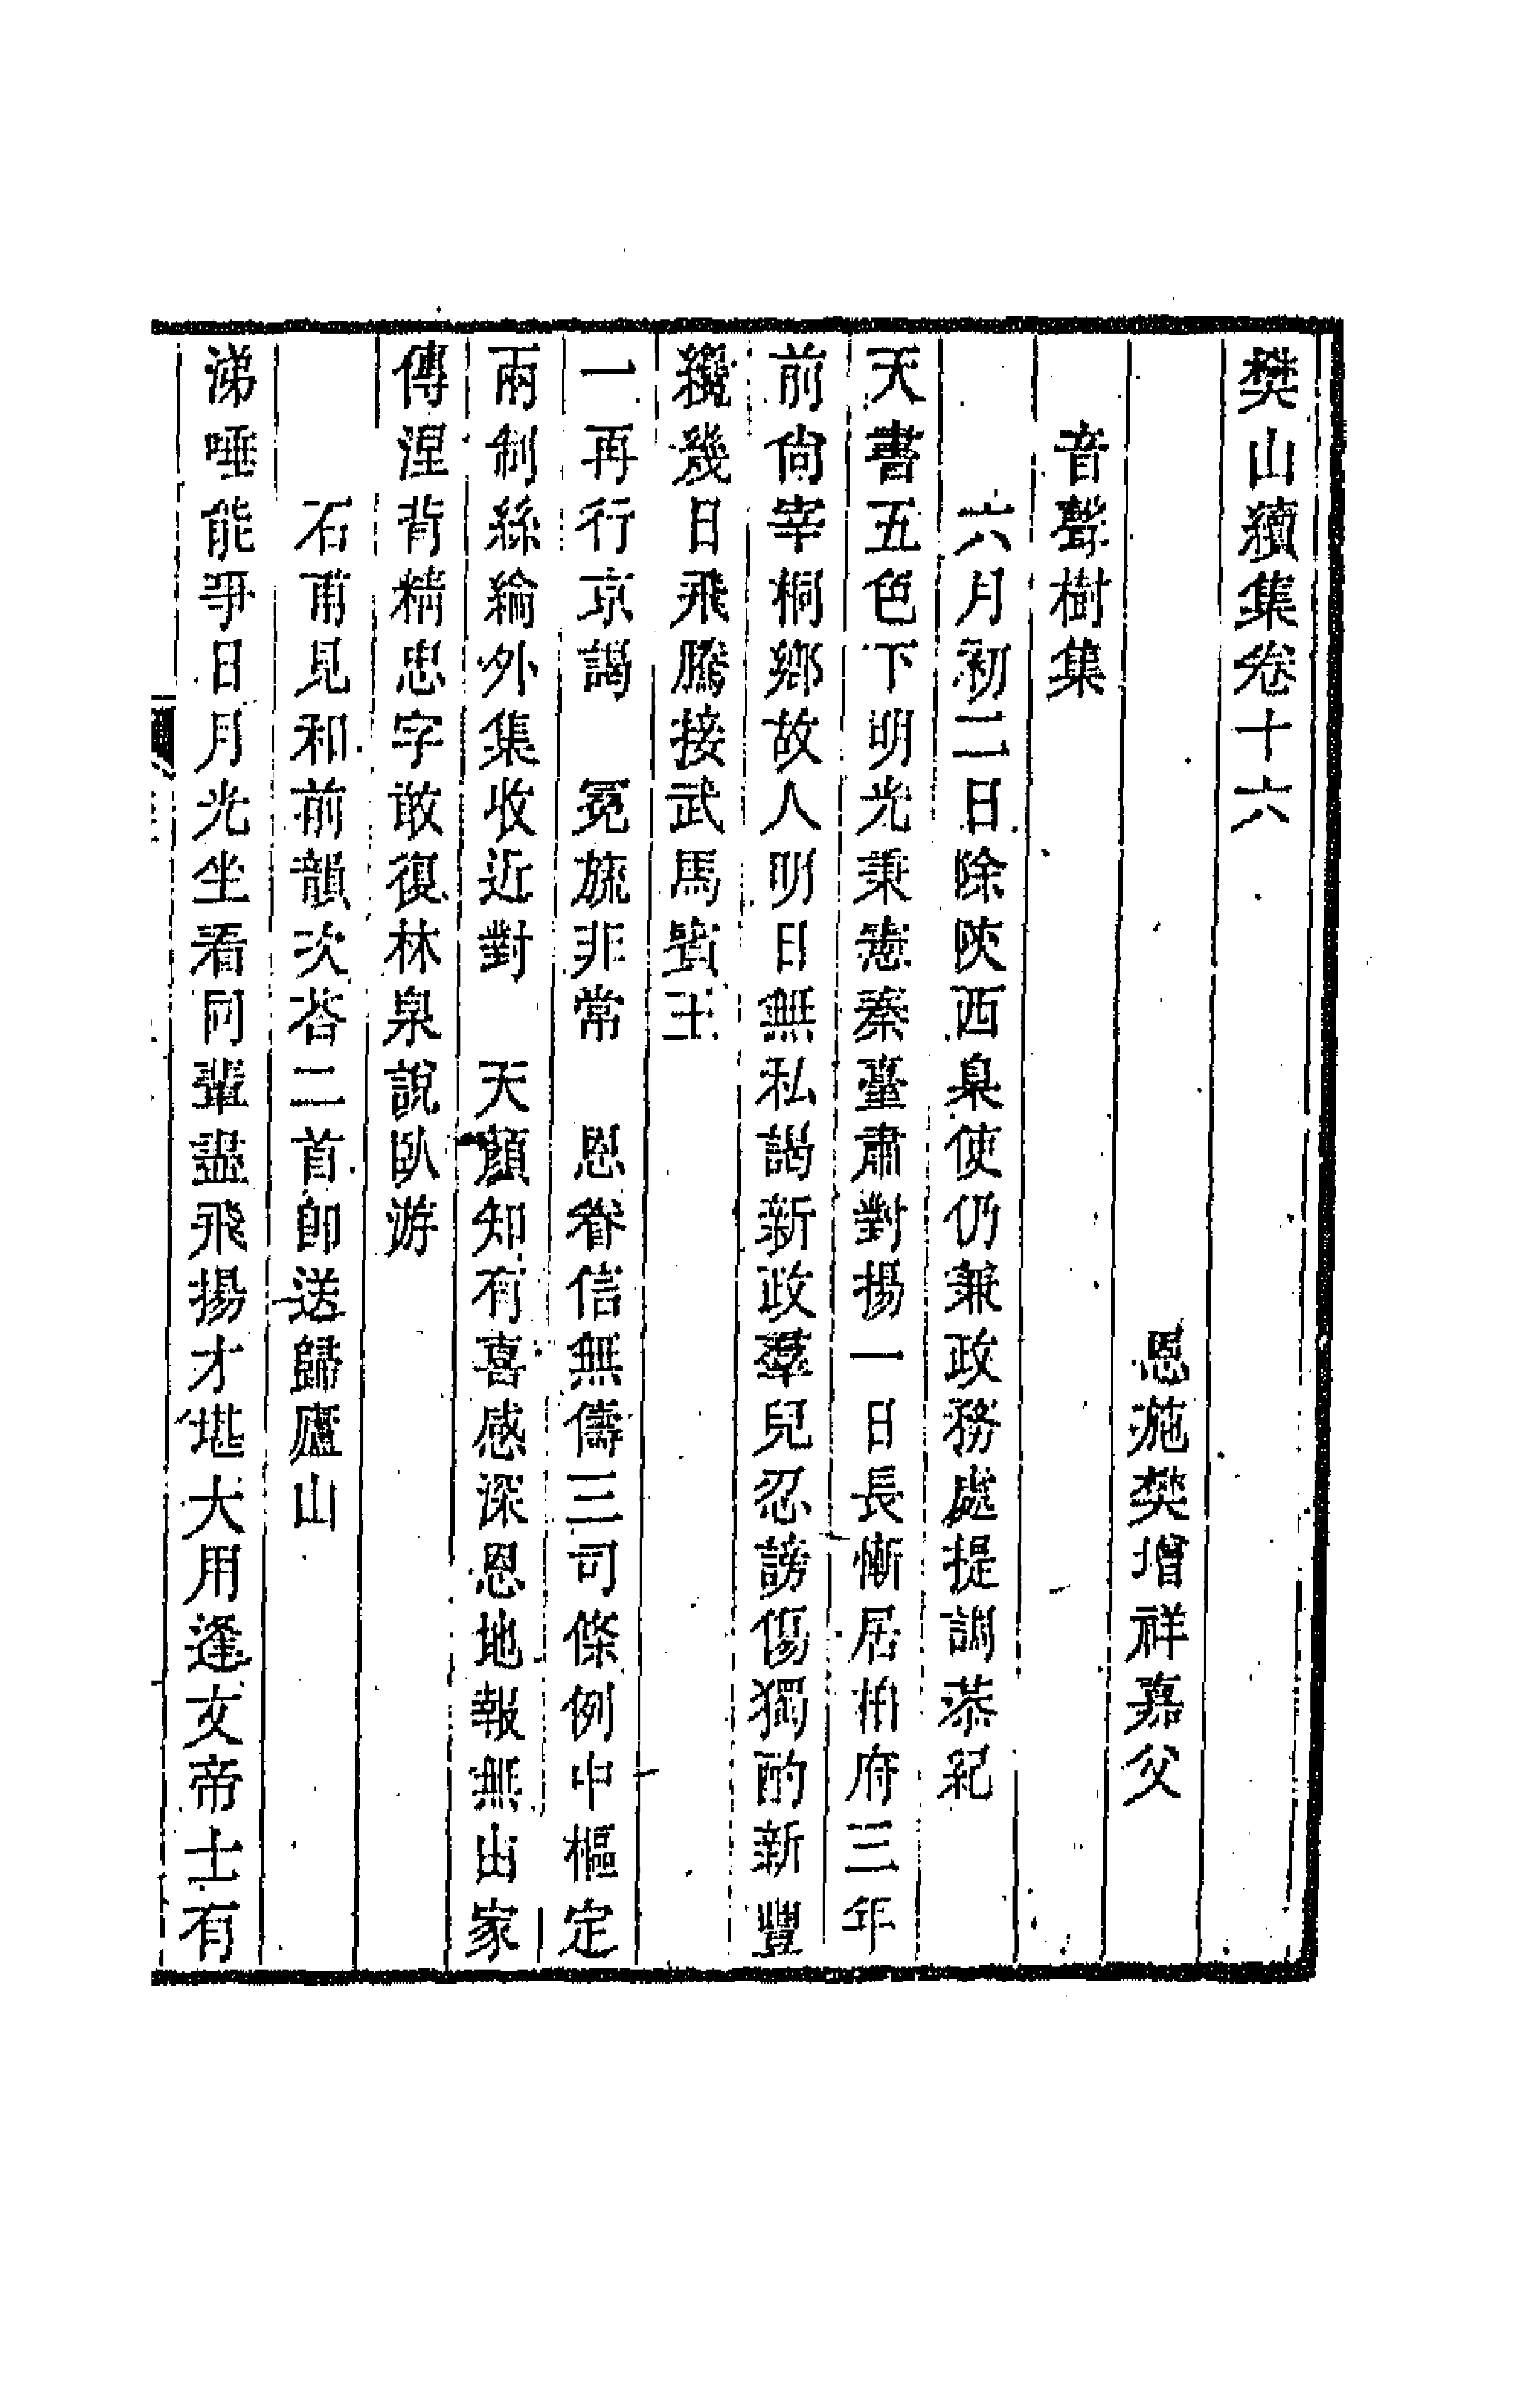 樊山續集卷十六
恩施樊增祥嘉父
音聲樹集
六月初二日除陝西臬使仍兼政務處提調恭紀
天書五色下明光秉憲秦臺肅對揚一日長慚居柏府三年
前尙宰桐鄉故人明日無私謁新政羣兒忍謗傷獨酌新豐
纔幾日飛騰接武馬賓王
一再行京謁 冕旒非常 恩眷信無儔三司條例中樞定
兩制絲綸外集收近對 天顏知有喜感深恩地報無由家
傳涅背精忠字敢復林泉說臥游
石甫見和前韻次荅二首卽送歸廬山
涕唾能爭日月光坐看同輩盡飛揚才堪大用逢文帝士有